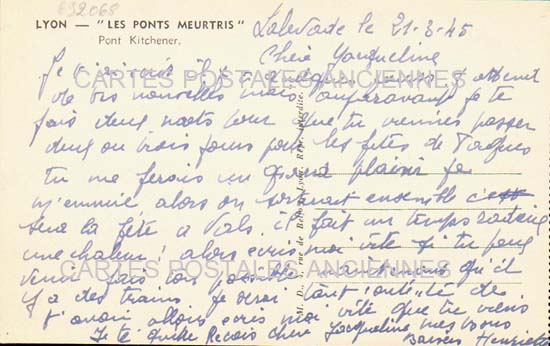 692068
LYON — "LES PONTS MEURTRIS"
Pont Kitchener.
le 21-3-45
Chère Jacqueline
CARTES POSTALES ANCIENNES
de tes nouvelles mais auparavant je te
fais deux mots pour que tu viennes passer
deux ou trois jours pour les fêtes de Pâques
tu me ferais un grand plaisir je
m'ennuie alors on sortirait ensemble
sera la fête à Vals. il fait un temps
une chaleur! alors écris moi vite si tu peux
venir fais ton possible maintenant qu'il
CARTES POSTALES ANCIENNES
y a des trains je serai tant de
t'avoir allons écris moi vite que tu viens
Je te quitte Reçois chère Jacqueline mes bons
Baisers Henriette